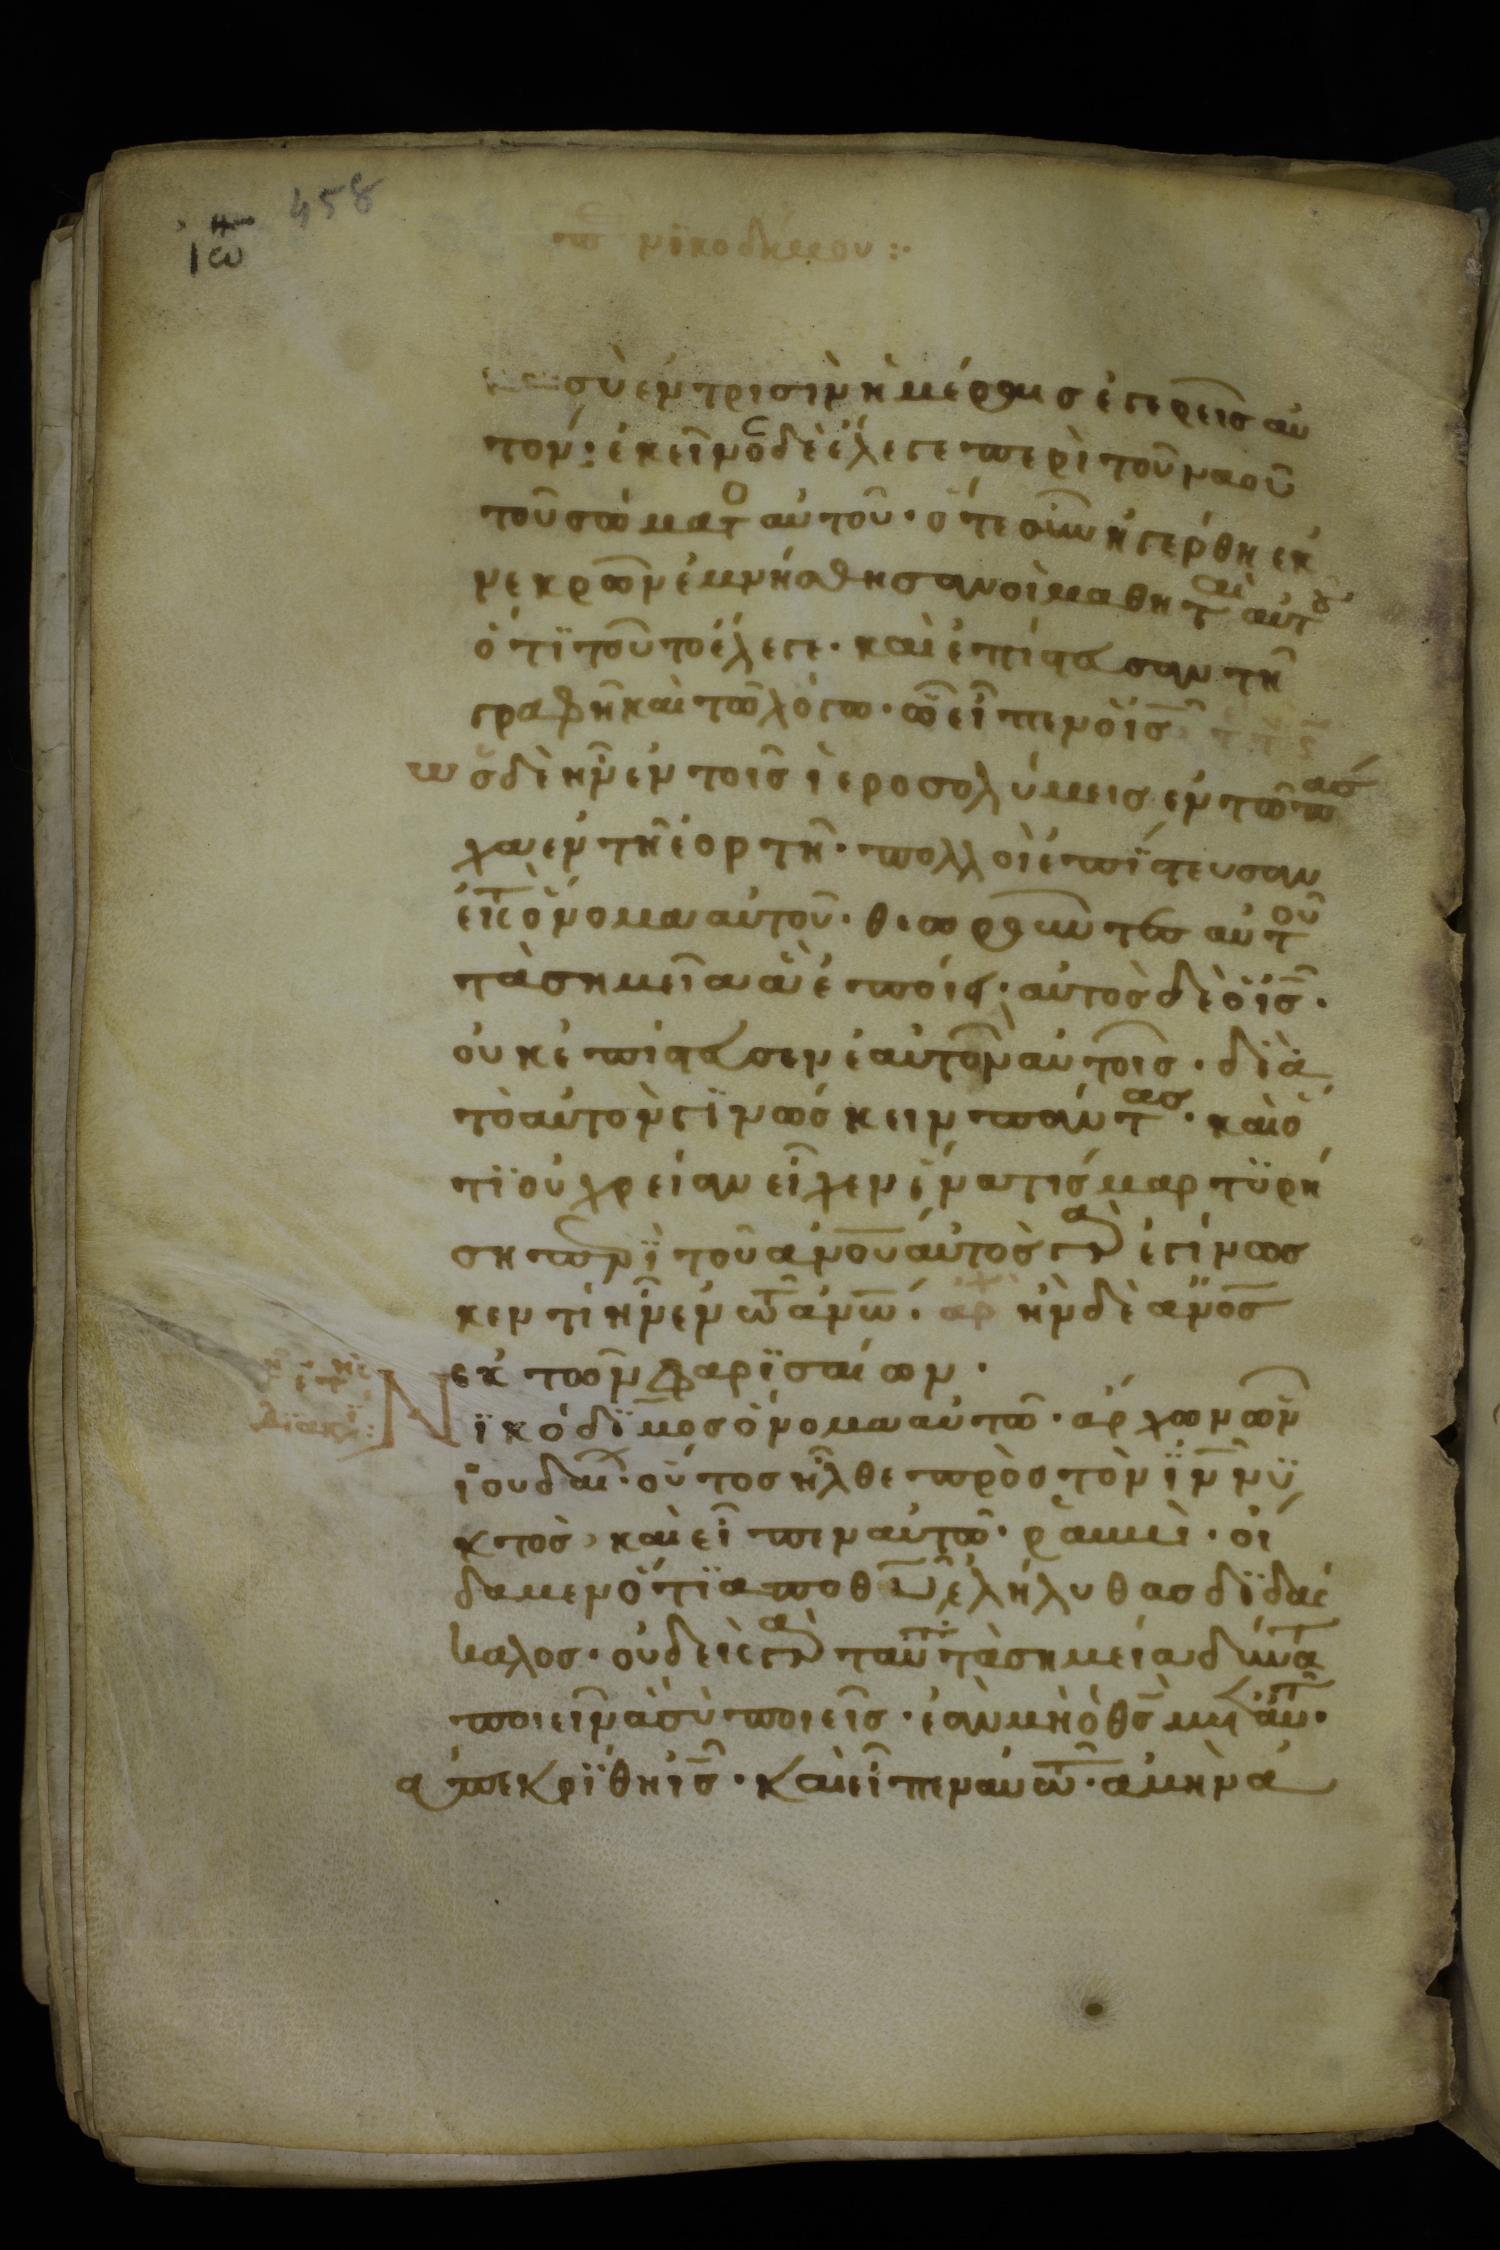 458
ἰω
νϊκοδήμου :·
καὶ σὺ ἐν τρισὶν ἡμέραις ἐγερεῖς αὐ
τόν· ἐκεῖνος δὲ ἔλεγε περὶ τοῦ ναοῦ
τοῦ σώματο αὐτοῦ· ὅτε οὖν ἠγέρθη ἐκ
νεκρῶν ἐμνήσθησαν οἱ μαθηταὶ αὐτου
ὅτϊ τοῦτο ἔλεγε· καὶ ἐπίστευσαν τῆ
γραφῆ καὶ τῶ λόγω· ὧ εἶπεν ὁ ἰς
ὡς δὲ ἦν ἐν τοῖς ἱεροσολύμεις ἐν τῶ πάσ
χα ἐν τῆ ἑορτῆ· πολλοὶ ἐπίστευσαν
εἰς τὸ ὄνομα αὐτοῦ· θεωροῦντες αὐτοῦ
τὰ σημεῖα ἃ ἐποίει· αὐτὸς δὲ ὁ ἰς·
οὐκ ἐπίστευσεν ἑαυτὸν αὐτοῖς· δϊὰ
τὸ αὐτὸν γϊνώσκειν πάντας· καὶ ὅ
τϊ οὐ χρείαν εἶχεν ἵνα τις μαρτϋρή
ση περὶ τοῦ ἀνου αὐτὸς γὰρ ἐγίνωσ
κεν τί ἦν ἐν τῶ ἀνω· ἀρχ ἦν δὲ ἀνος
ἐκ τῶν φαρϊσαίων·
Νϊκόδϊμος ὄνομα αὐτῶ· ἄρχων τῶν
ἰουδαίων· οὗτος ἦλθε πρὸς τὸν ἰν νϋ
κτὸς καὶ εἶπεν αὐτῶ· ῥαββὶ· οἴ
δαμεν ὅτϊ ἀπὸ θυ ἐλήλυθας δϊδάσ
καλος· οὐδεὶς γὰρ ταῦτα τὰ σημεία δύναται
ποιεῖν ἃ σὺ ποιεῖς· ἐὰν μὴ ὁ θς μετ αὐτοῦ·
ἀπεκρϊθη ἰς· καὶ εἶπεν αὐτῶ· ἀμὴν ἀ